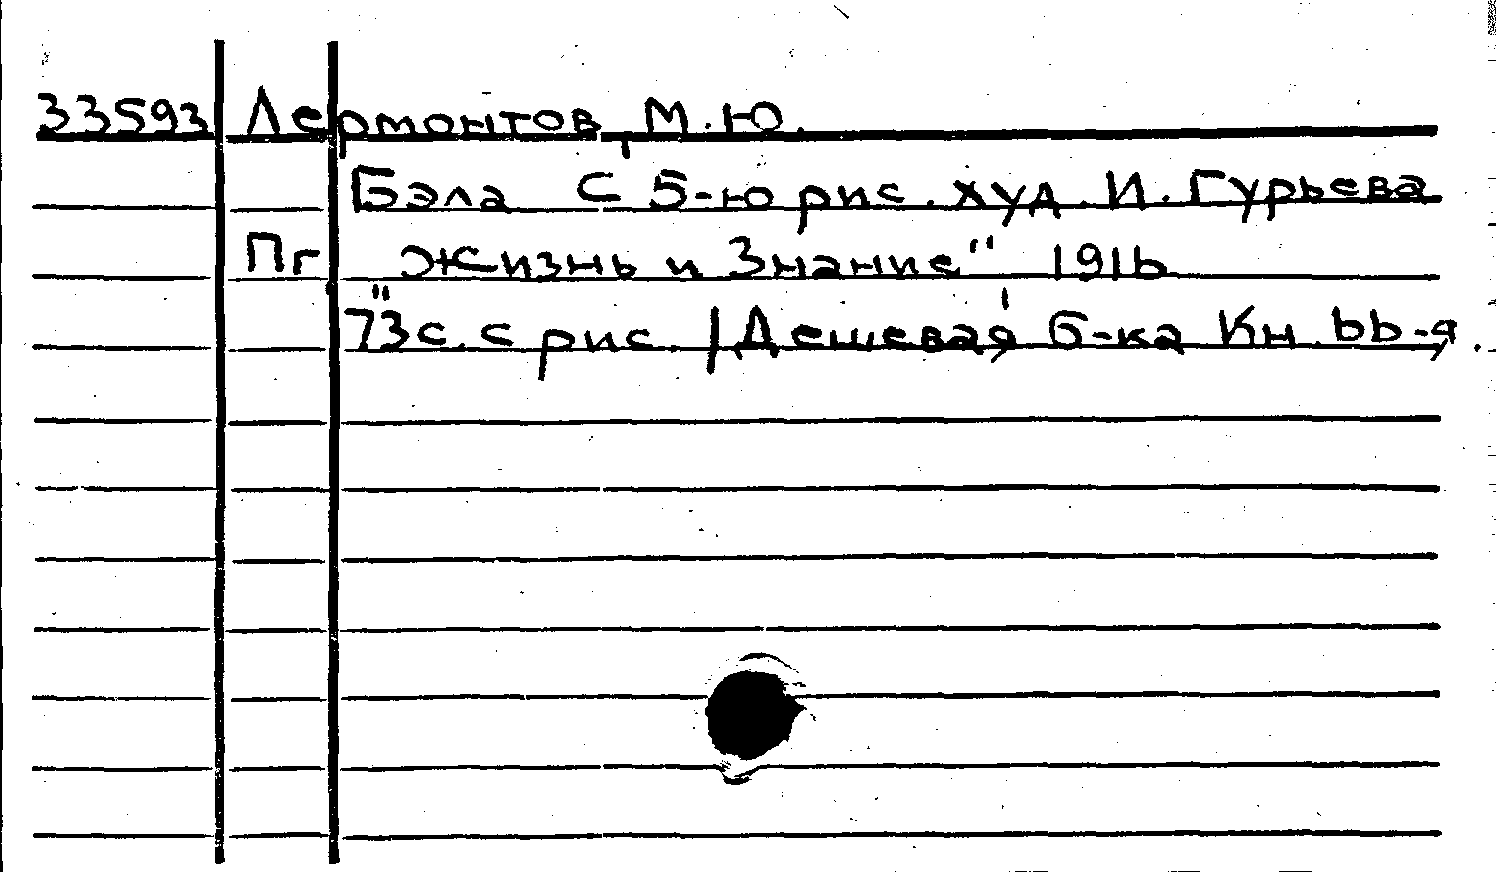 33593 Лермонтов, М.Ю.
Бэла С 5-ю рис. худ. И. Гурьева
Пг „Жизнь и Знание" 1916
73 с. с рис. /Дешевая б-ка Кн. 66-я.